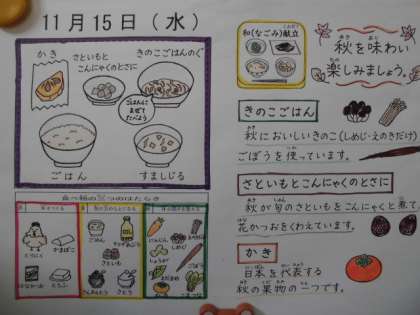 11月15日(水)
かき
さといもと
こんにゃくのとさに
きのこごはんのぐ
ごはんに
まぜて
たべよう
ごはん
すましじる
和(なごみ)献立
秋を味わい
楽しみましょう。
きのこごはん
秋においしいきのこ(しめじ・えのきだけ)
ごぼうを使っています。
さといもとこんにゃくのとさに
秋が旬のさといもをこんにゃくと煮て、
花かつおをくわえています。
かき
日本を代表する
秋の果物の一つです。
とりにく
かまぼこ
ごはん
さといも
さとう
にんじん
しめじ
しょうが
ごぼう